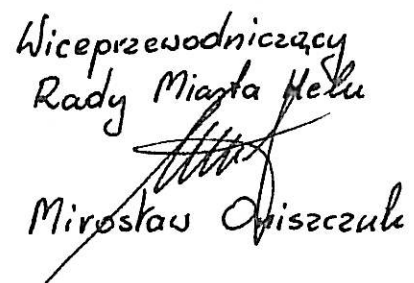 Wiceprzewodniczący
Rady Miasta Helu
Mirosław Oniszczuk